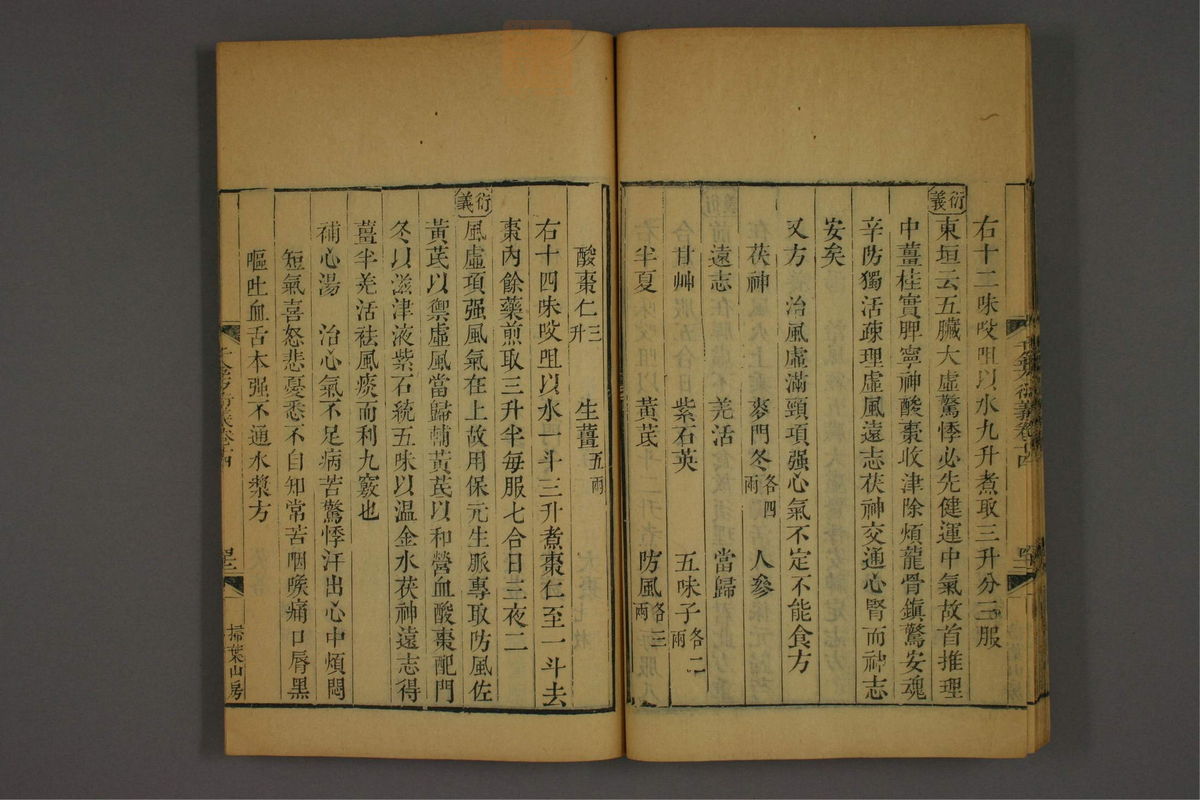 右十二味㕮咀以水九升煮取三升分三服
衍義
東垣云五臟大虛驚悸必先健運中氣故首推理
中薑桂實脾寧神酸棗收津除煩龍骨鎮驚安魂
辛防獨活疎理虛風遠志茯神交通心腎而神志
安矣
又方 治風虛滿頸項强心氣不定不能食方
茯神 麥門冬各四兩 人參
遠志 羌活 當歸
甘艸 紫石英 五味子各二兩
半夏 黃芪 防風各三兩
酸棗仁三升 生薑五兩
右十四味㕮咀以水一斗三升煮棗仁至一斗去
棗內餘藥煎取三升半每服七合日三夜二
衍義
風虛項强風氣在上故用保元生脈專取防風佐
黃芪以禦虛風當歸輔黃芪以和營血酸棗配門
冬以滋津液紫石統五味以温金水茯神遠志得
薑半羌活祛風痰而利九竅也
補心湯 治心氣不足病苦驚悸汗出心中煩悶
短氣喜怒悲憂悉不自知常苦咽喉痛口唇黑
嘔吐血舌本强不通水漿方
掃葉山房